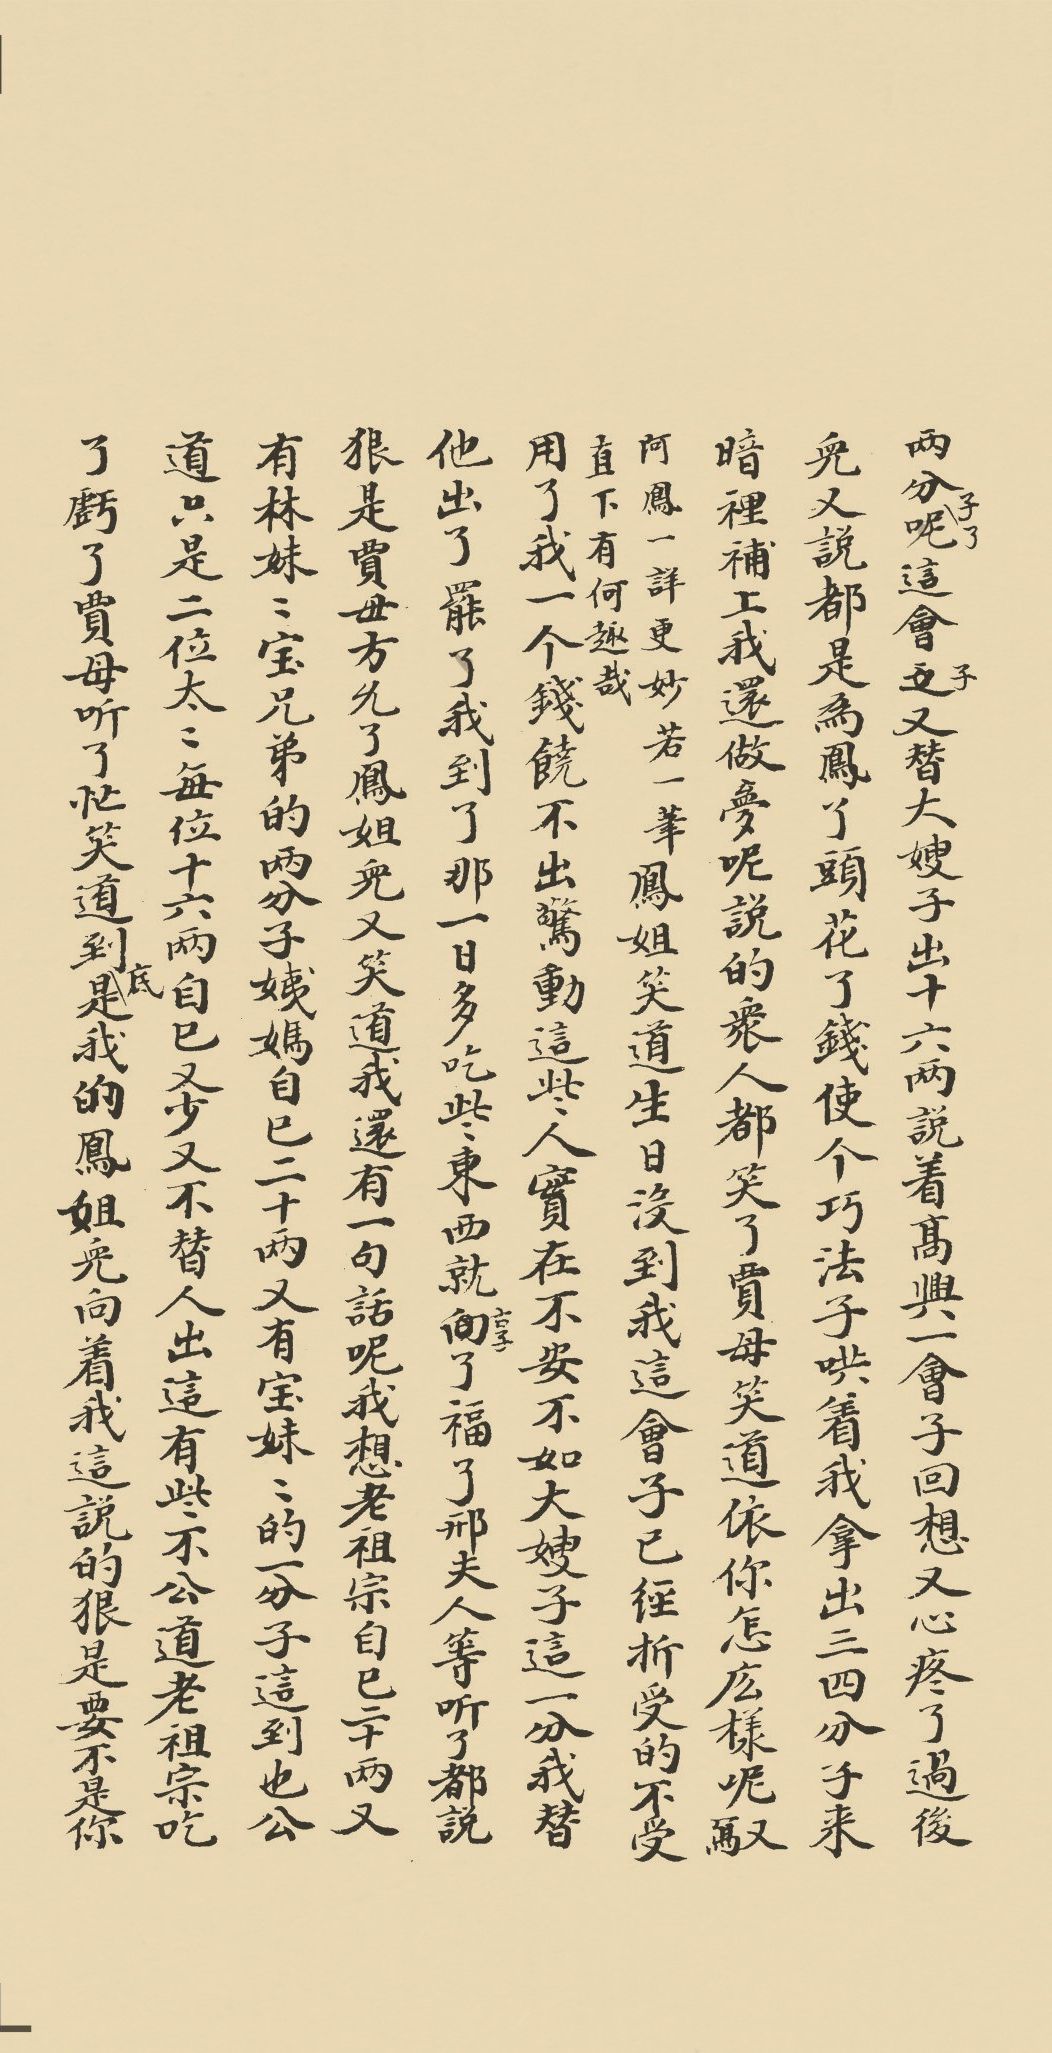 两分呢子了這會又子又替大嫂子出十六两説着高興一會子回想又心疼了過後
皃又説都是為鳳丫頭花了錢使个巧法子哄着我拿出三四分子来
暗裡補上我還做夢呢説的衆人都笑了賈母笑道依你怎庅樣呢馭
阿鳳一詳更妙若一筆
直下有何趣哉
鳳姐笑道生日没到我這會子已經折受的不受
用了我一个錢饒不出驚動這些人實在不安不如大嫂子這一分我替
他出了罷了我到了那一日多吃些東西就享子了福了邢夫人等听了都説
狠是賈母方允了鳳姐皃又笑道我還有一句話呢我想老祖宗自已二十两又
有林妹〻宝兄弟的两分子姨媽自已二十两又有宝妹〻的一分子這到也公
道只是二位太〻每位十六两自已又少又不替人出這有些不公道老祖宗吃
了虧了賈母听了忙笑道到底是我的鳳姐皃向着我這説的狠是要不是你